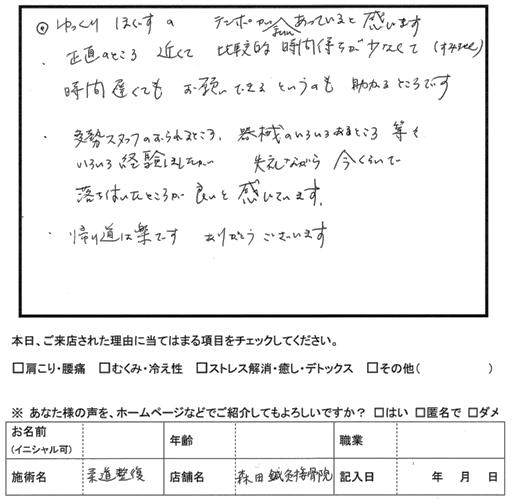 ◎ ゆっくり ほぐすの テンポが 合あっていると 感います
・正直のところ 近くて 比較的 時間待ちが少なくて (すみません)
時間遅くても お願いできる というのも 助かるところです
・多勢スタッフのおられるところ、器械のいろいろあるところ 等も
いろいろ経験しましたが 失礼ながら 今くらいで
落ち付いたところが 良いと 感じています。
・帰り道は楽です ありがとうございます
本日、ご来店された理由に当てはまる項目をチェックしてください。
□肩こり・腰痛 □むくみ・冷え性 □ストレス解消・癒し・デトックス □その他( )
※ あなた様の声を、ホームページなどでご紹介してもよろしいですか? □はい □匿名で □ダメ
お名前 (イニシャル可) 年齢 職業
施術名 柔道整復 店舗名 森田鍼灸接骨院 記入日 年 月 日